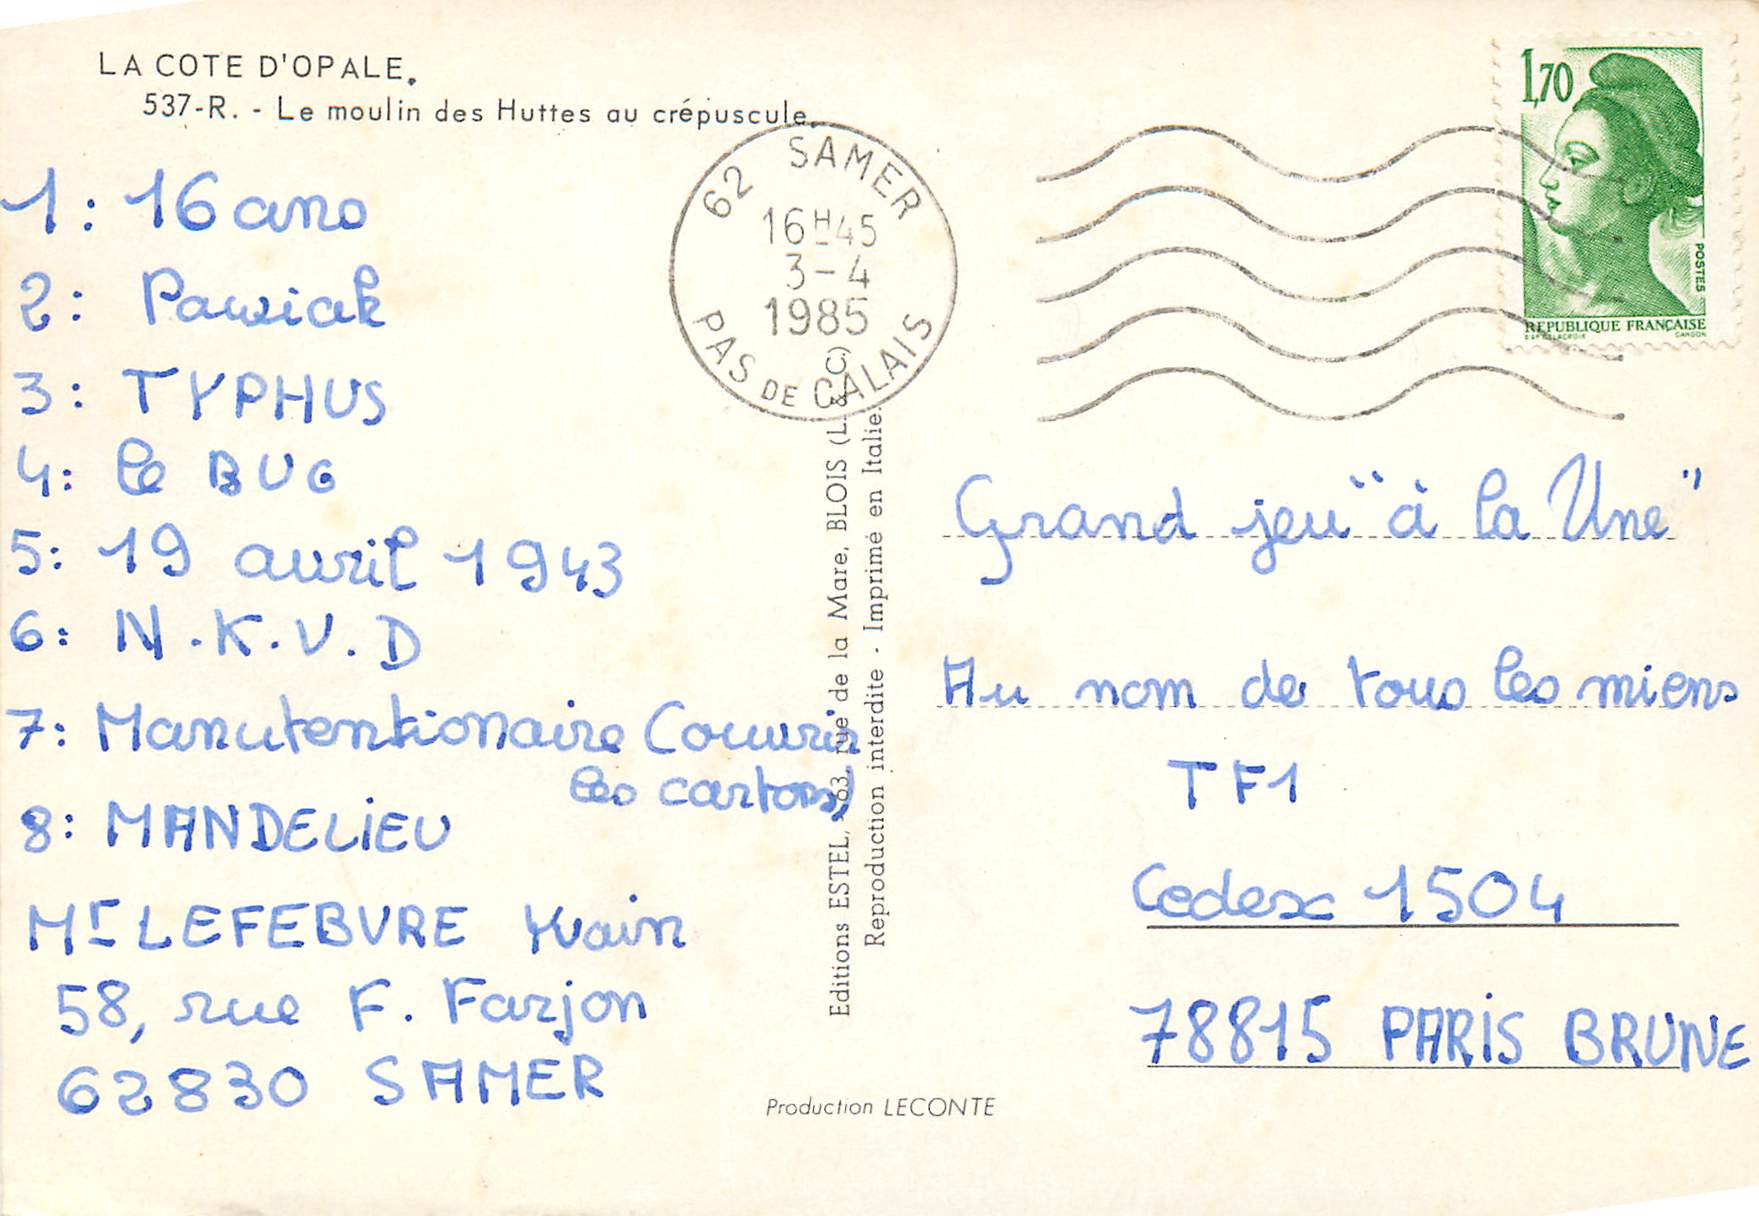 LA COTE D'OPALE.
537-R. - Le moulin des Huttes au crépuscule.
1: 16 ans
2: Pawiak
3: TYPHUS
4: le BUG
5: 19 avril 1943
6: N.K.V.D
7: Manutentionaire (ouvrir
les cartons)
8: MANDELIEU
Mr LEFEBVRE Yvain
58, rue F. Farjon
62830 SAMER
62 SAMER
16H45
3-4
1985
PAS DE CALAIS
Editions ESTEL, 63, rue de la Mare, BLOIS (L. & C.)
Reproduction interdite - Imprimé en Italie.
Production LECONTE
1,70
POSTES
REPUBLIQUE FRANÇAISE
D'AP. DELACROIX GANDON
Grand jeu "à la Une"
Au nom de tous les miens
TF1
Cedex 1504
78815 PARIS BRUNE